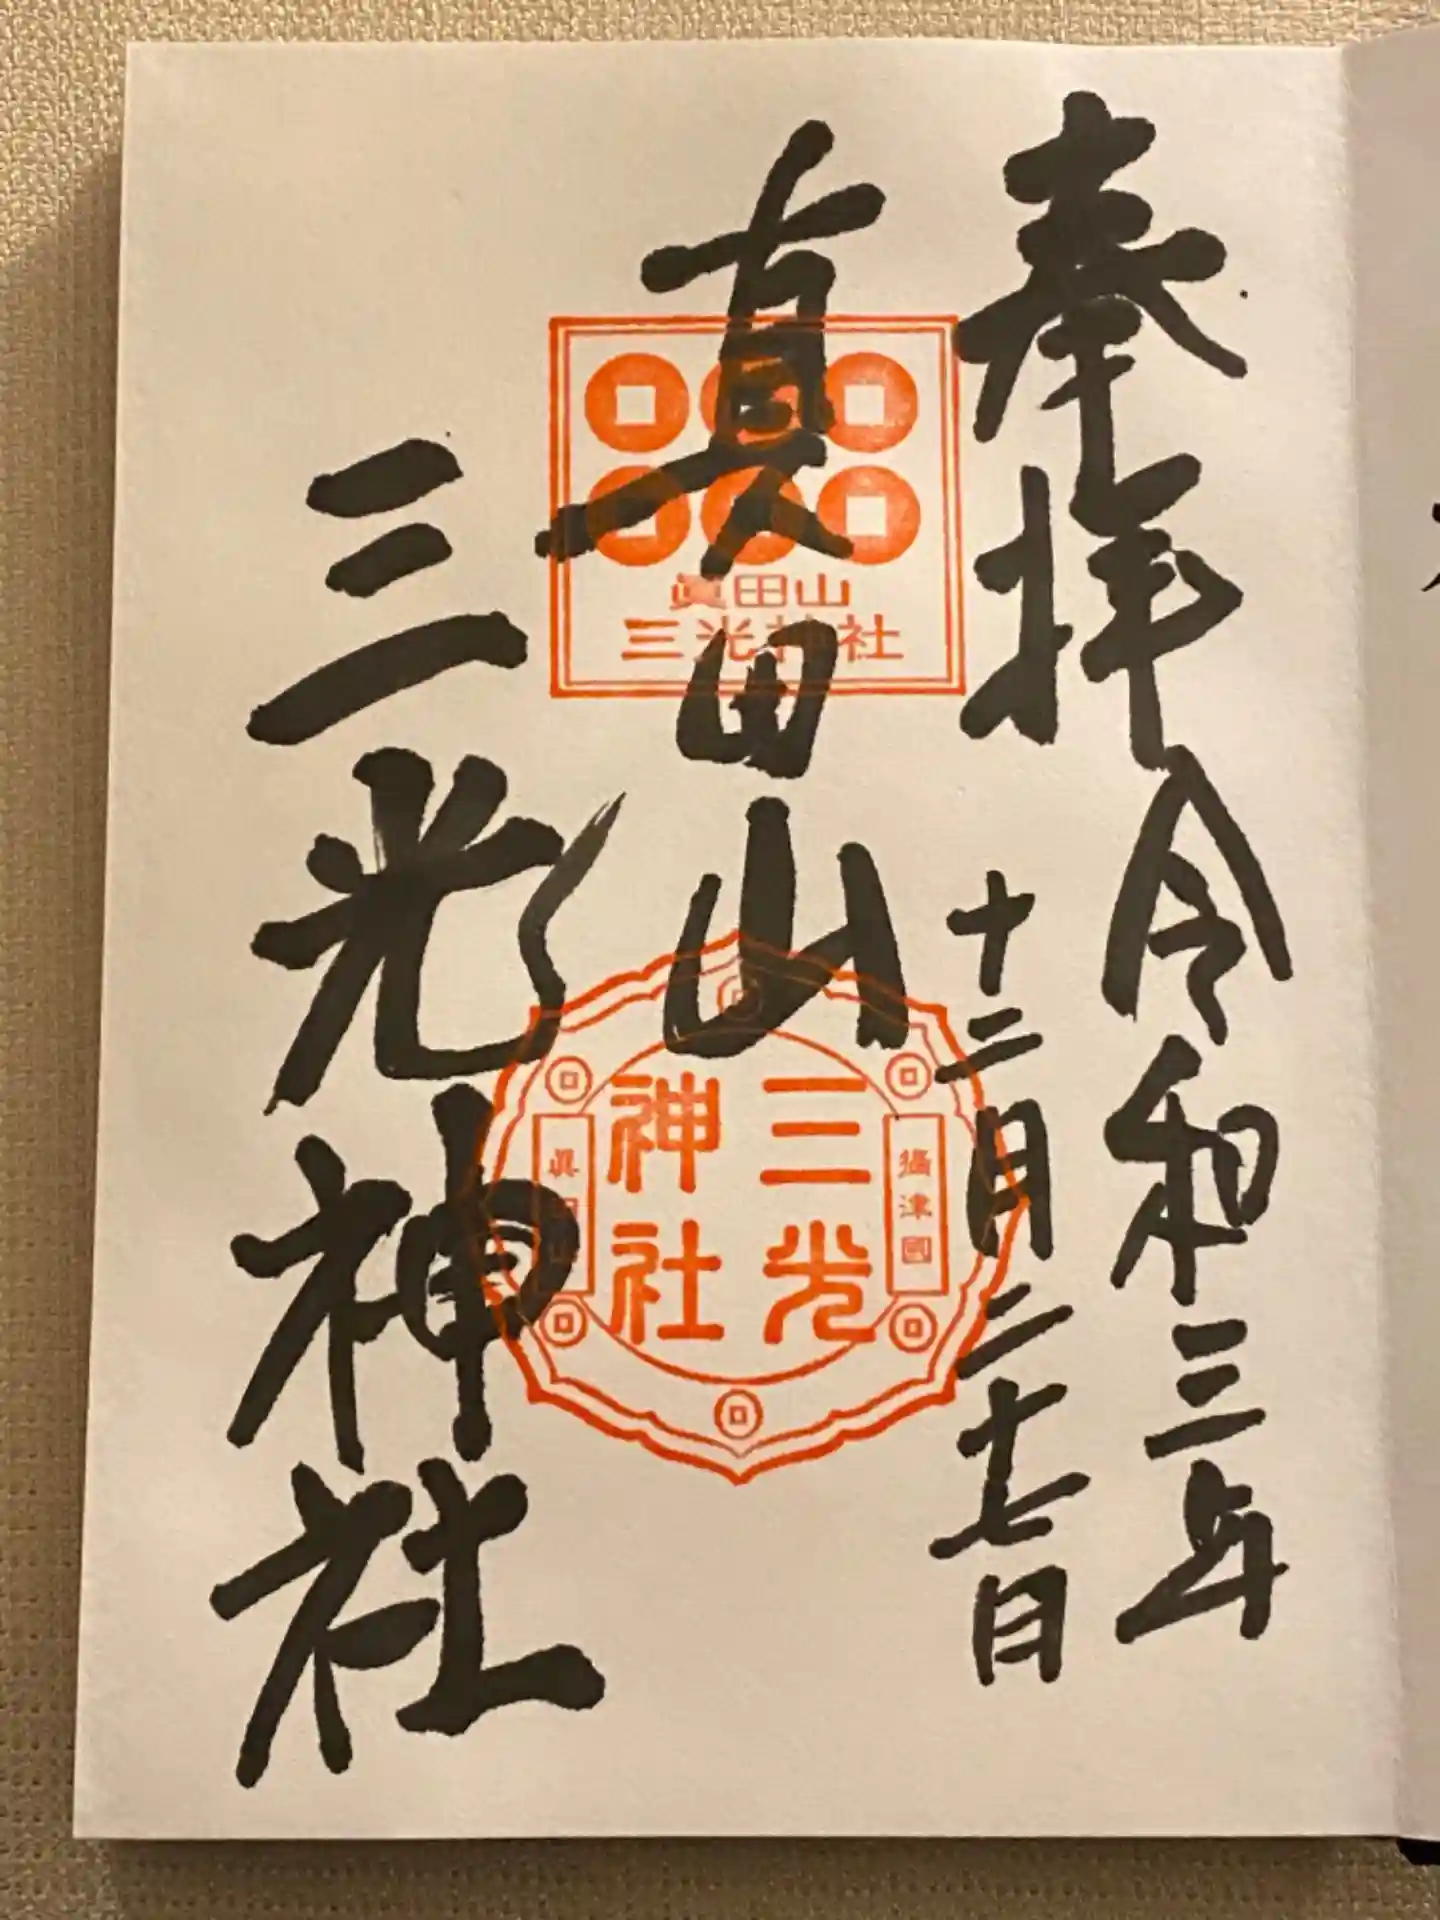 奉拝 令和三年
十二月二十七日
真田山
三光神社
眞田山
三光神社
三光
神社
攝津國
眞田山